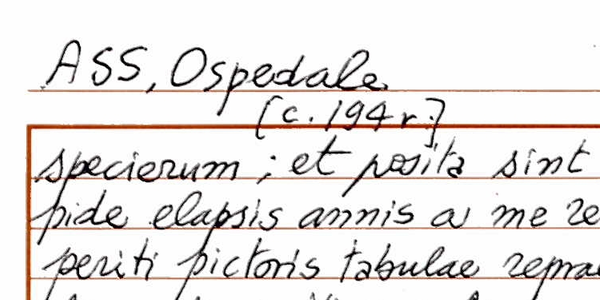 ASS, Ospedale
[c. 194 r.]
specierum ; et posita sint
pide elapsis annis a me re
periti pictoris tabulae repra